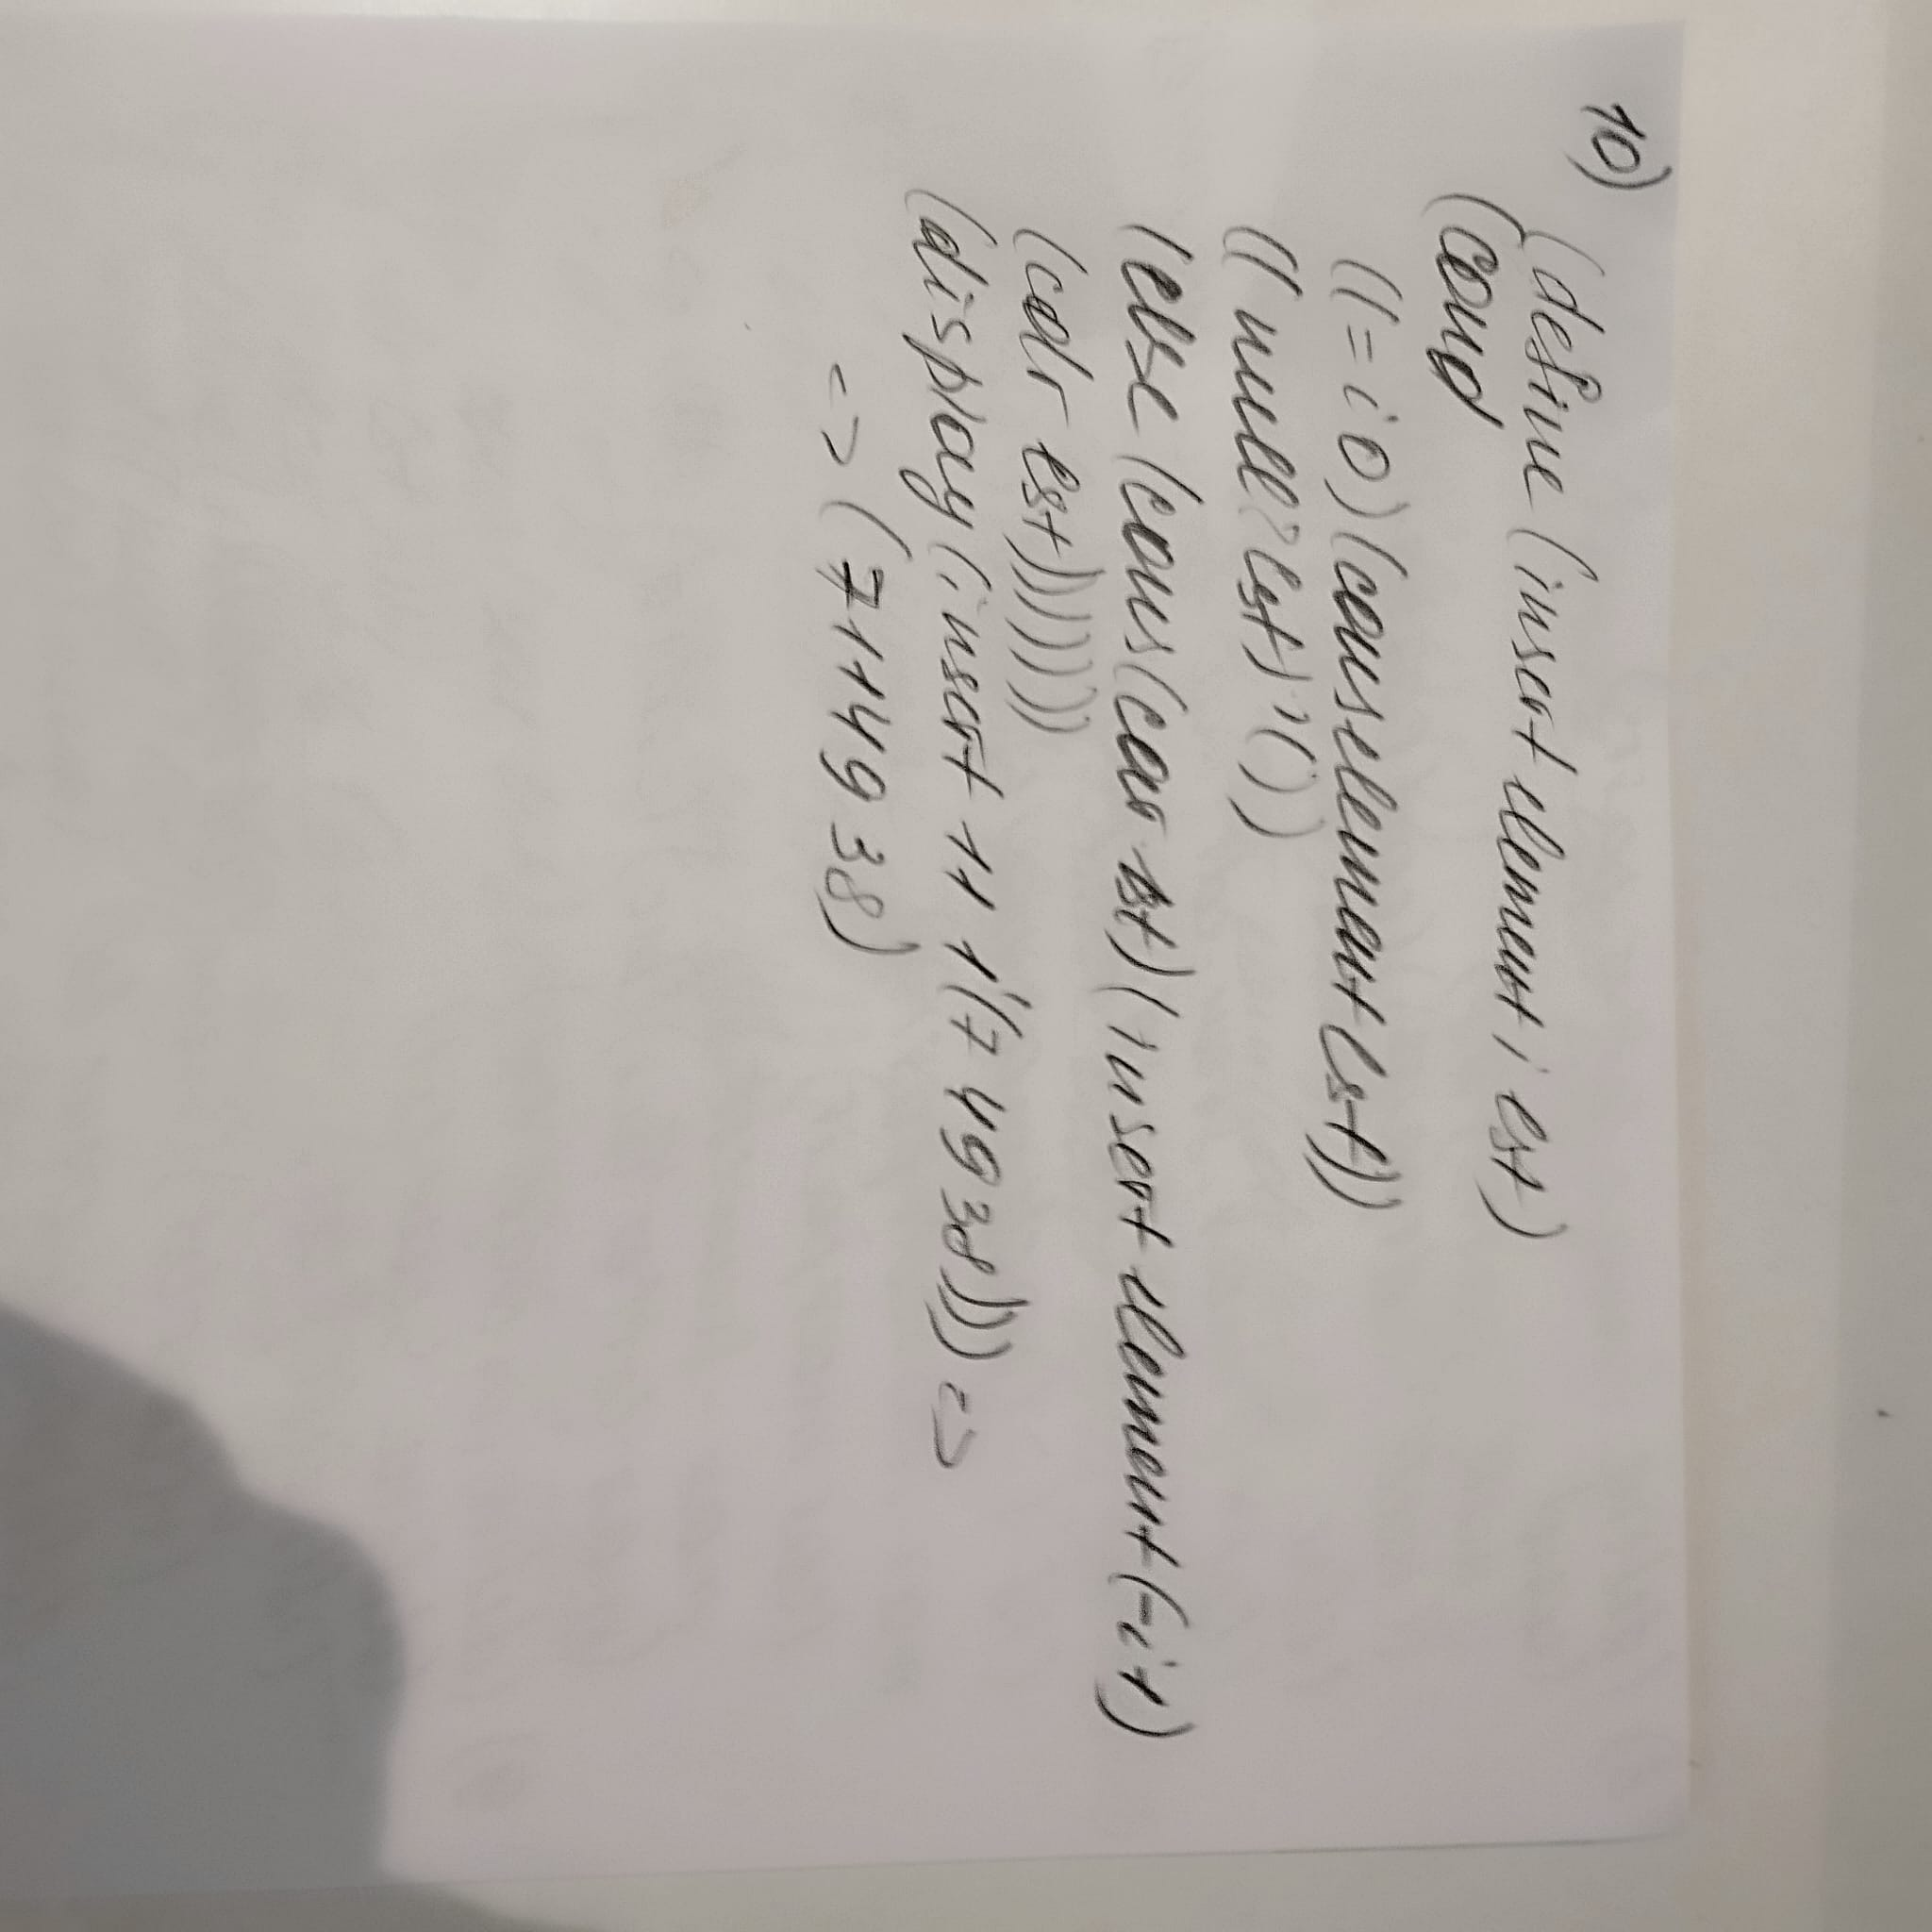 10) (define (insert element i lst)
(cond
((= i 0) (cons element lst))
((null? lst) '())
(else (cons (car lst) (insert element (- i 1)
(cdr lst)))))))
(display (insert 11 1 '(7 4 9 3 8))) =>
=> (7 11 4 9 3 8)